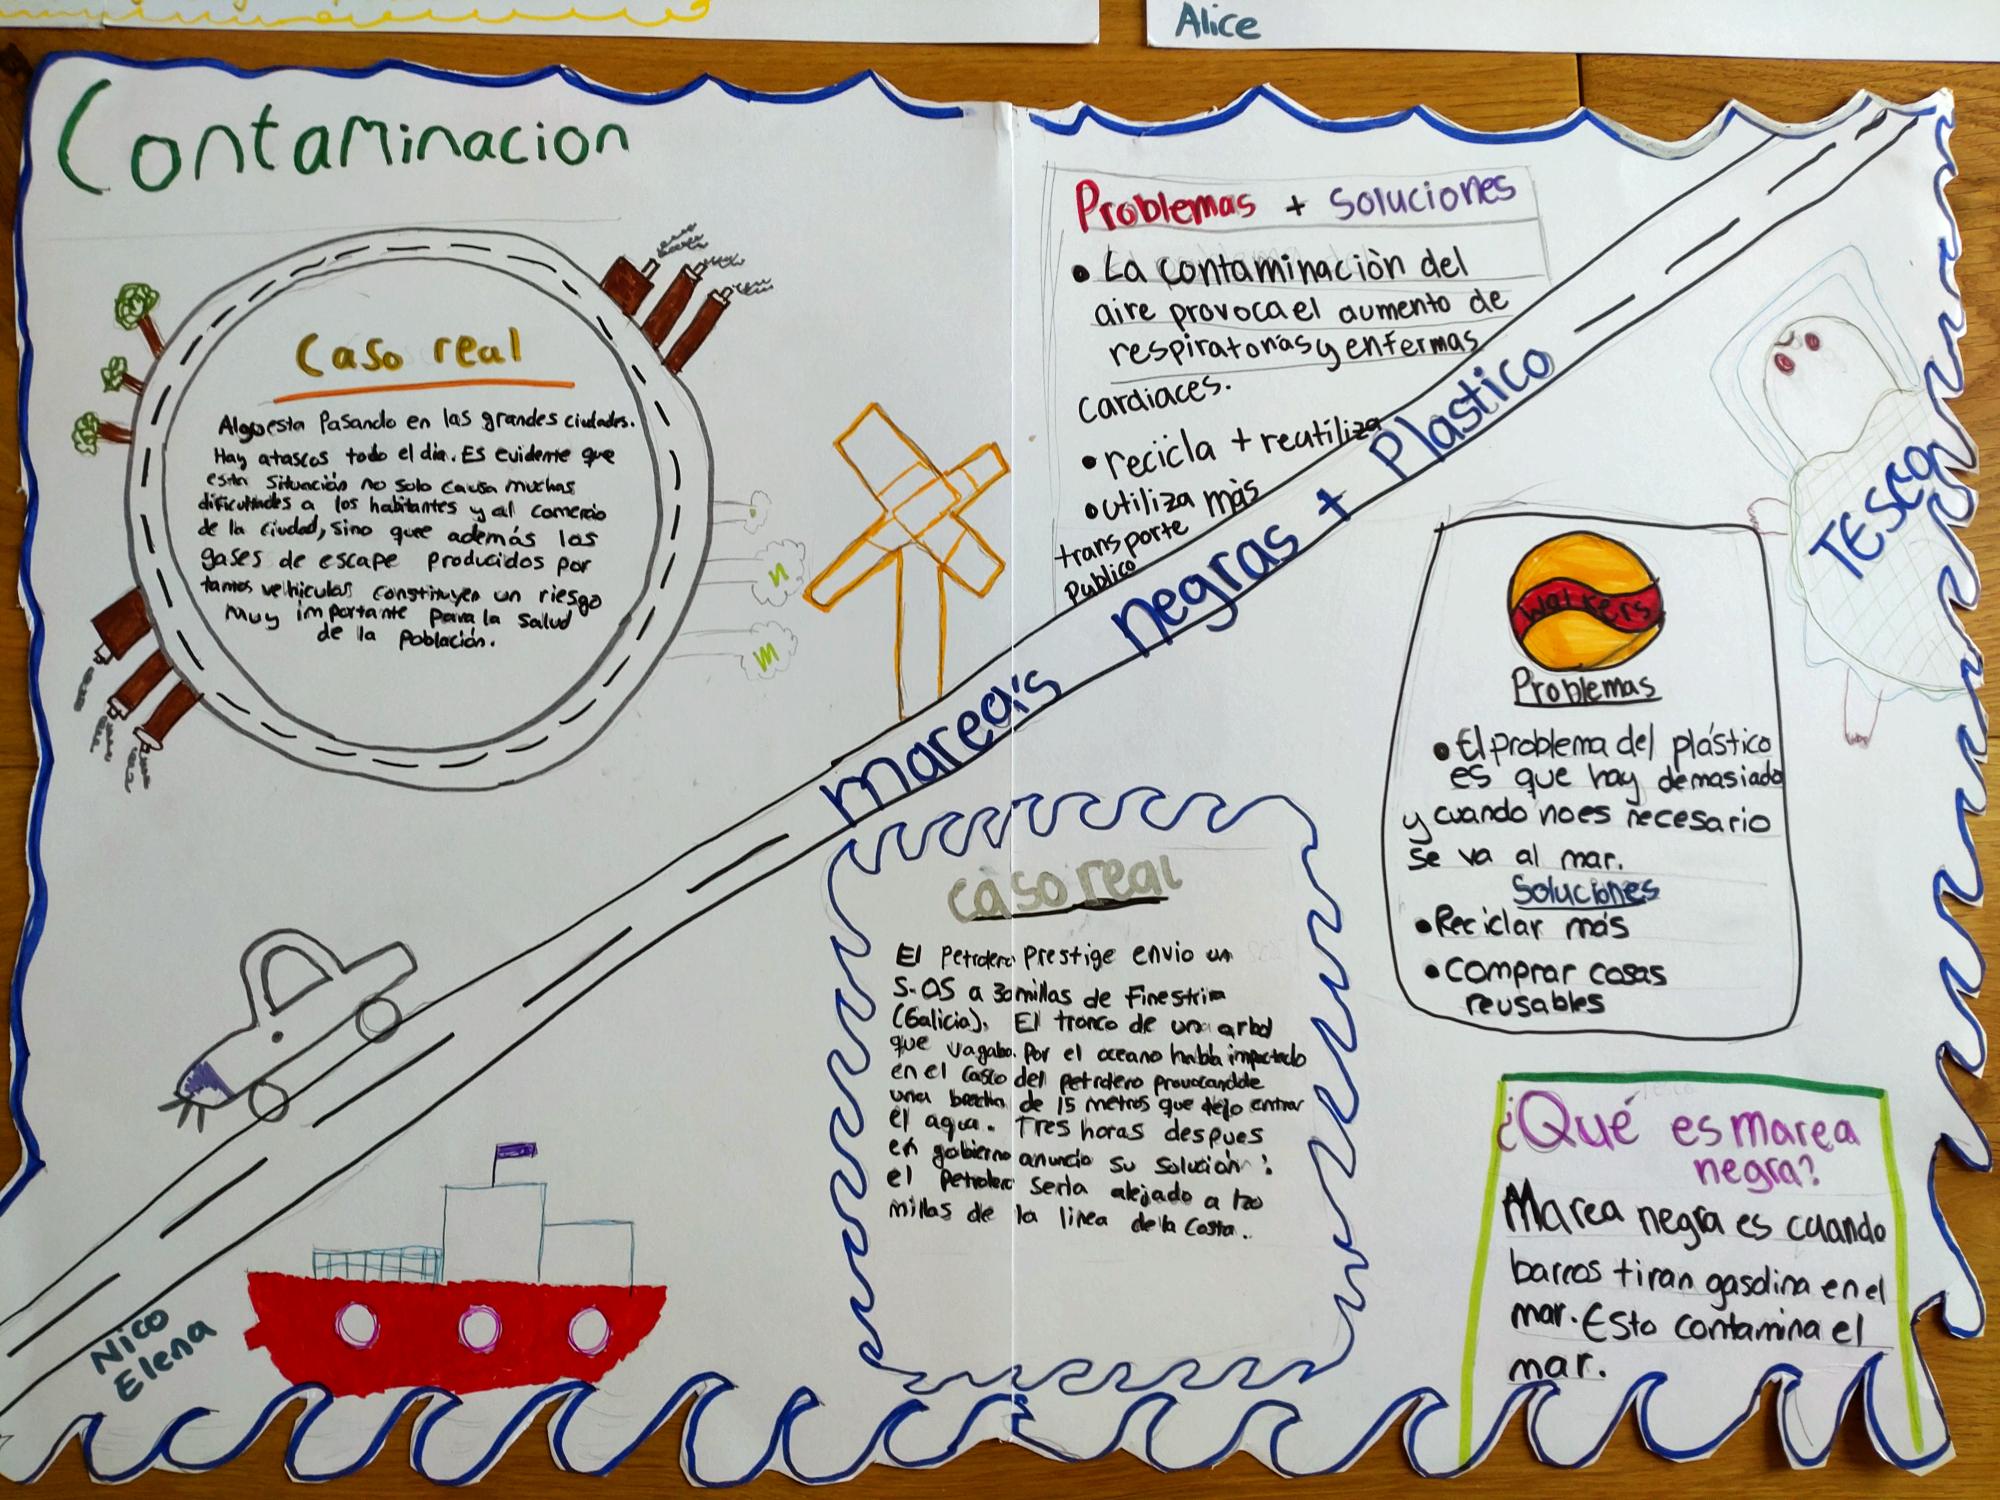 Alice
Contaminacion
Caso real
Algo esta Pasando en las grandes ciudades.
Hay atascos todo el dia. Es evidente que
esta situación no solo causa muchas
dificultades a los habitantes y al comercio
de la ciudad, sino que además los
gases de escape producidos por
tamos vehiculas constituyen un riesgo
Muy importante para la salud
de la Población.
n
m
Problemas + Soluciones
• La contaminaciòn del
aire provoca el aumento de
respiratorias y enfermas
Cardiaces.
• recicla + reutiliza
• utiliza màs
transporte
Publico
mareas negras + Plastico
TESCO
Walkers
Problemas
• El problema del plástico
es que hay demasiado
y cuando no es necesario
se va al mar.
Soluciones
• Reciclar más
• Comprar cosas
reusables
Caso real
El Petrolero Prestige envio un
S-OS a 30 millas de Finestrim
(Galicia). El tronco de un arbol
que vagaba. Por el oceano habia impactado
en el casco del petrolero provocandole
una brecha de 15 metros que dejo entrar
el agua. Tres horas despues
en gobierno anuncio su solución:
el Petrolero seria alejado a 120
millas de la linea de la Costa.
¿Qué es marea
negra?
Marea negra es cuando
barcos tiran gasolina en el
mar. Esto contamina el
mar.
Nico
Elena